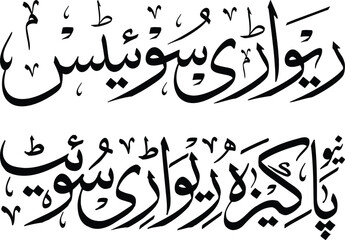 ریواڑی سوئیٹس
نیو پاکیزہ ریواڑی سوئیٹ